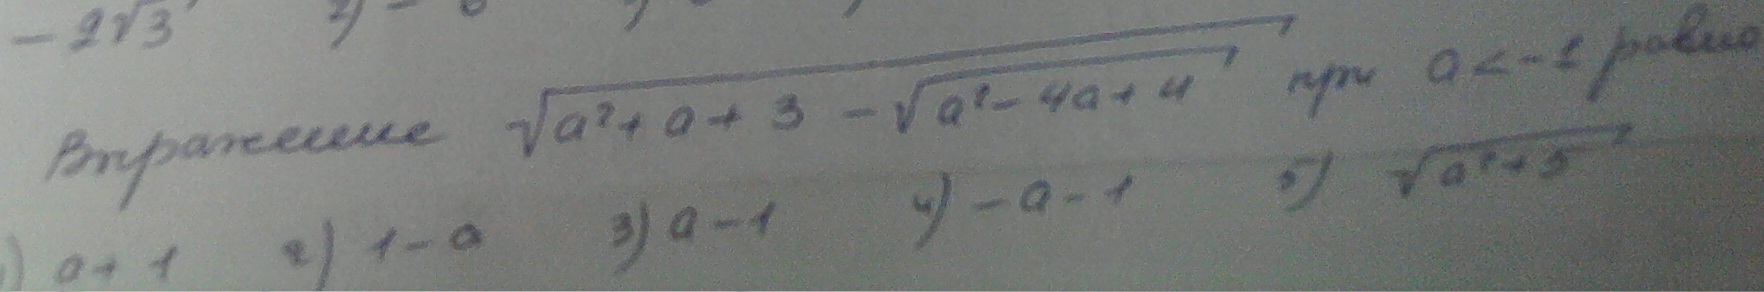 -2√3 2) -6
Выражение √(a²+a+3-√(a²-4a+4)) при a<-1 равно
1) a+1 2) 1-a 3) a-1 4) -a-1 5) √(a²+5)